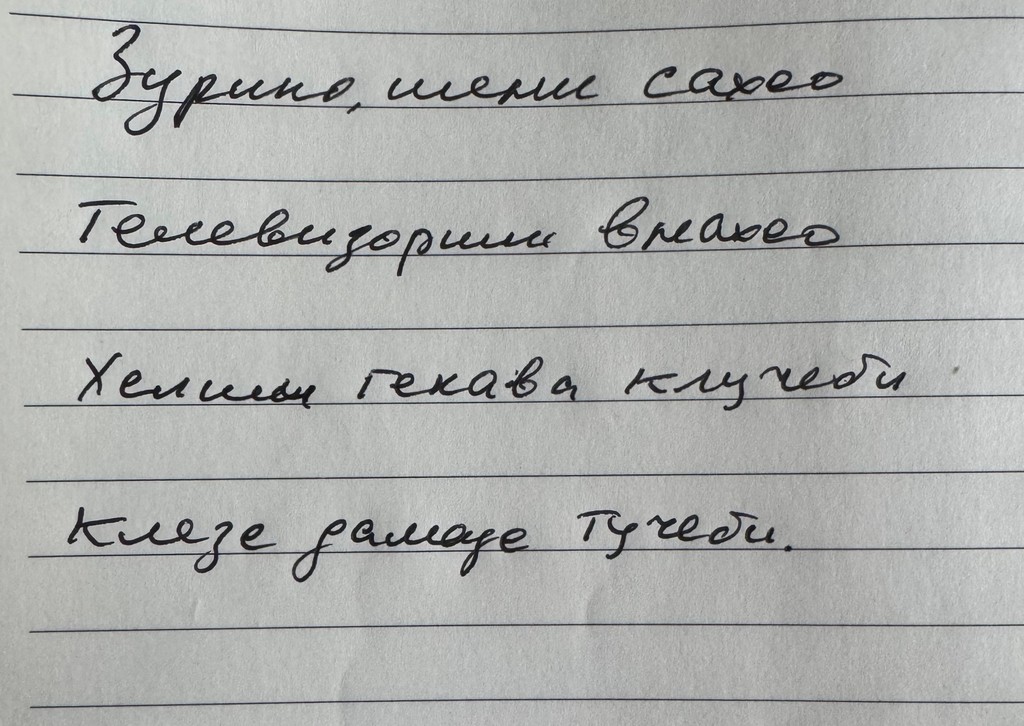 Зурико, шени сахео
Телевизорши внахео
Хелиши гекава клучеби
Клезе дамаде тучеби.